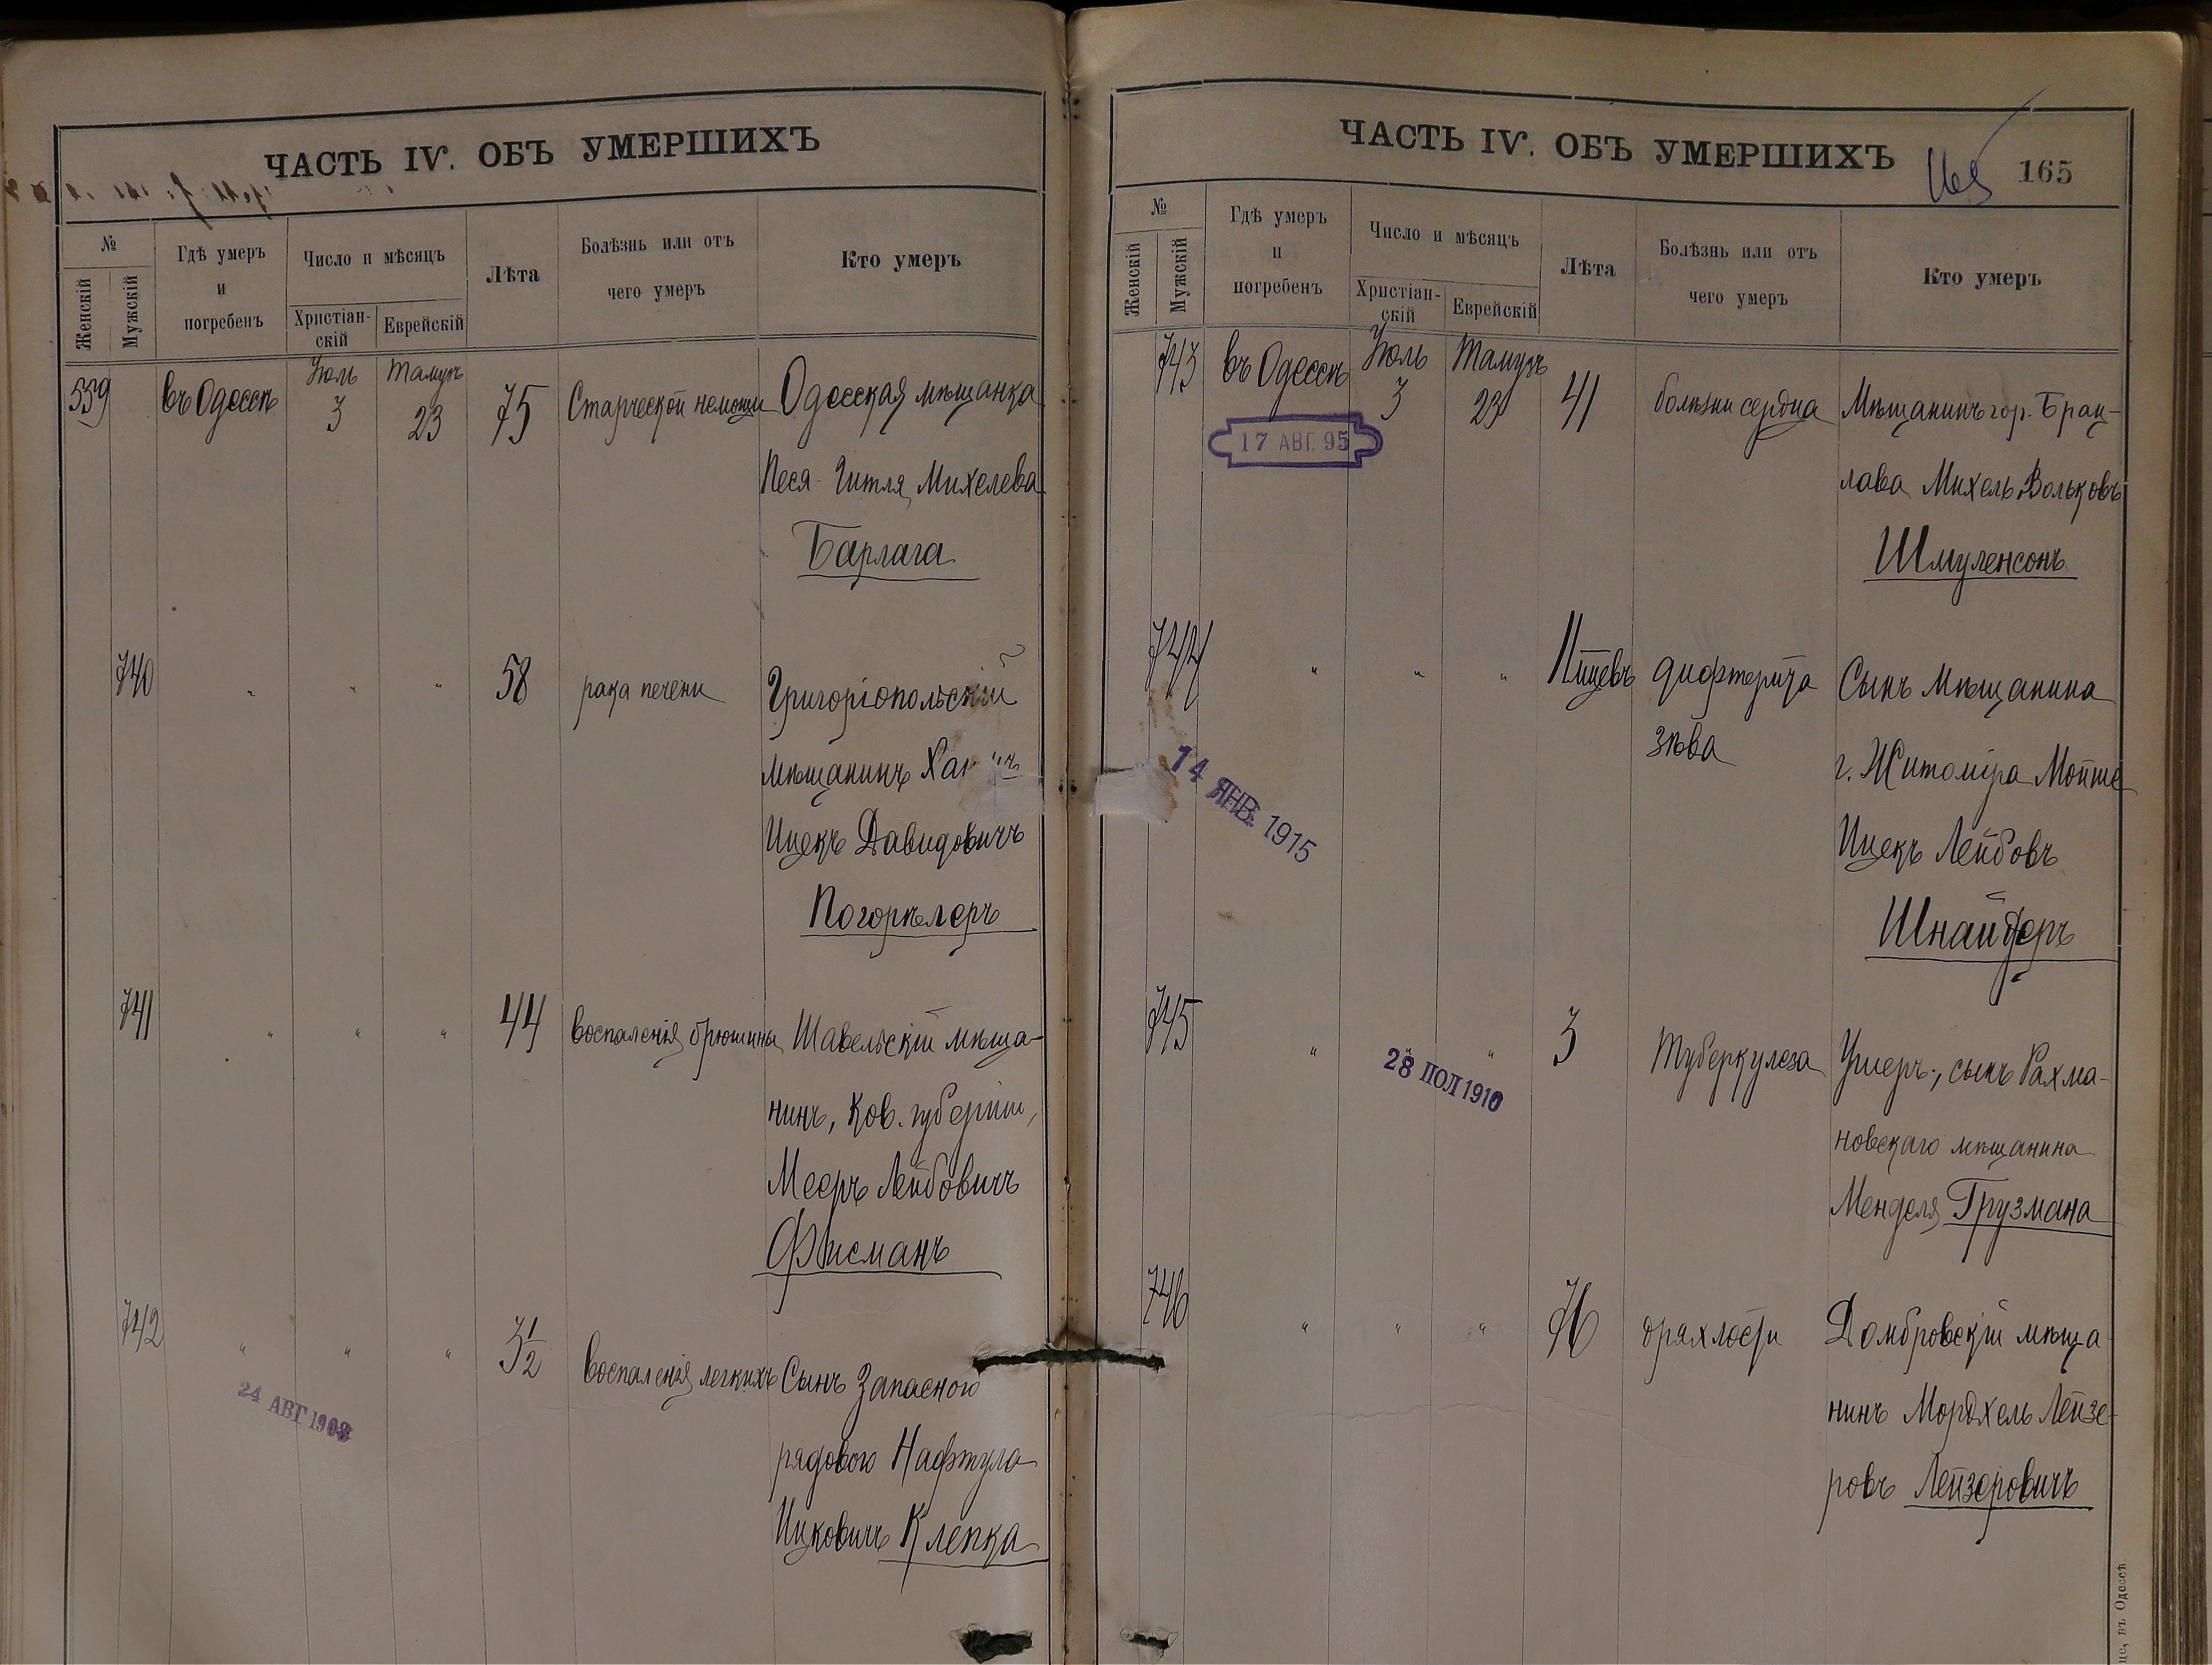 ЧАСТЬ IV. ОБЪ УМЕРШИХЪ
№
Женскій
Мужскій
Гдѣ умеръ
и
погребенъ
Число и мѣсяцъ
Христіан-
скій
Еврейскій
Лѣта
Болѣзнь или отъ
чего умеръ
Кто умеръ
539
въ Одессѣ
Іюль
3
Тамузъ
23
75
Старческой немощи
Одесская мѣщанка
Песя-Гитля Михелева
Барлага
740
" " "
58
рака печени
Григоріопольскій
мѣщанинъ
Ицекъ Давидовичъ
Погорѣлеръ
741
" " "
44
воспаленія брюшины
Шавельскій мѣща-
нинъ, Ков. губерніи,
Мееръ Лейбовичъ
Фисманъ
742
" " "
3 1/2
воспаленія легкихъ
Сынъ Запасного
рядового Нафтула
Ицковичъ Клепка
24 АВГ 1908
ЧАСТЬ IV. ОБЪ УМЕРШИХЪ
165
165
№
Женскій
Мужскій
Гдѣ умеръ
и
погребенъ
Число и мѣсяцъ
Христіан-
скій
Еврейскій
Лѣта
Болѣзнь или отъ
чего умеръ
Кто умеръ
743
въ Одессѣ
Іюль
3
Тамузъ
23
41
болѣзни сердца
Мѣщанинъ гор. Брац-
лава Михель Вольковъ
Шмуленсонъ
17 АВГ. 95
744
" " "
11 мцевъ
дифтерита
зѣва
Сынъ мѣщанина
г. Житоміра Мойше
Ицекъ Лейбовъ
Шнайдеръ
14 ЯНВ. 1915
745
" " "
3
туберкулеза
Ушеръ, сынъ Рахма-
новскаго мѣщанина
Менделя Грузмана
28 ІЮЛ 1910
746
" " "
76
дряхлости
Домбровскій мѣща
нинъ Мордхель Лейзе-
ровъ Лейзеровичъ
въ Одессѣ